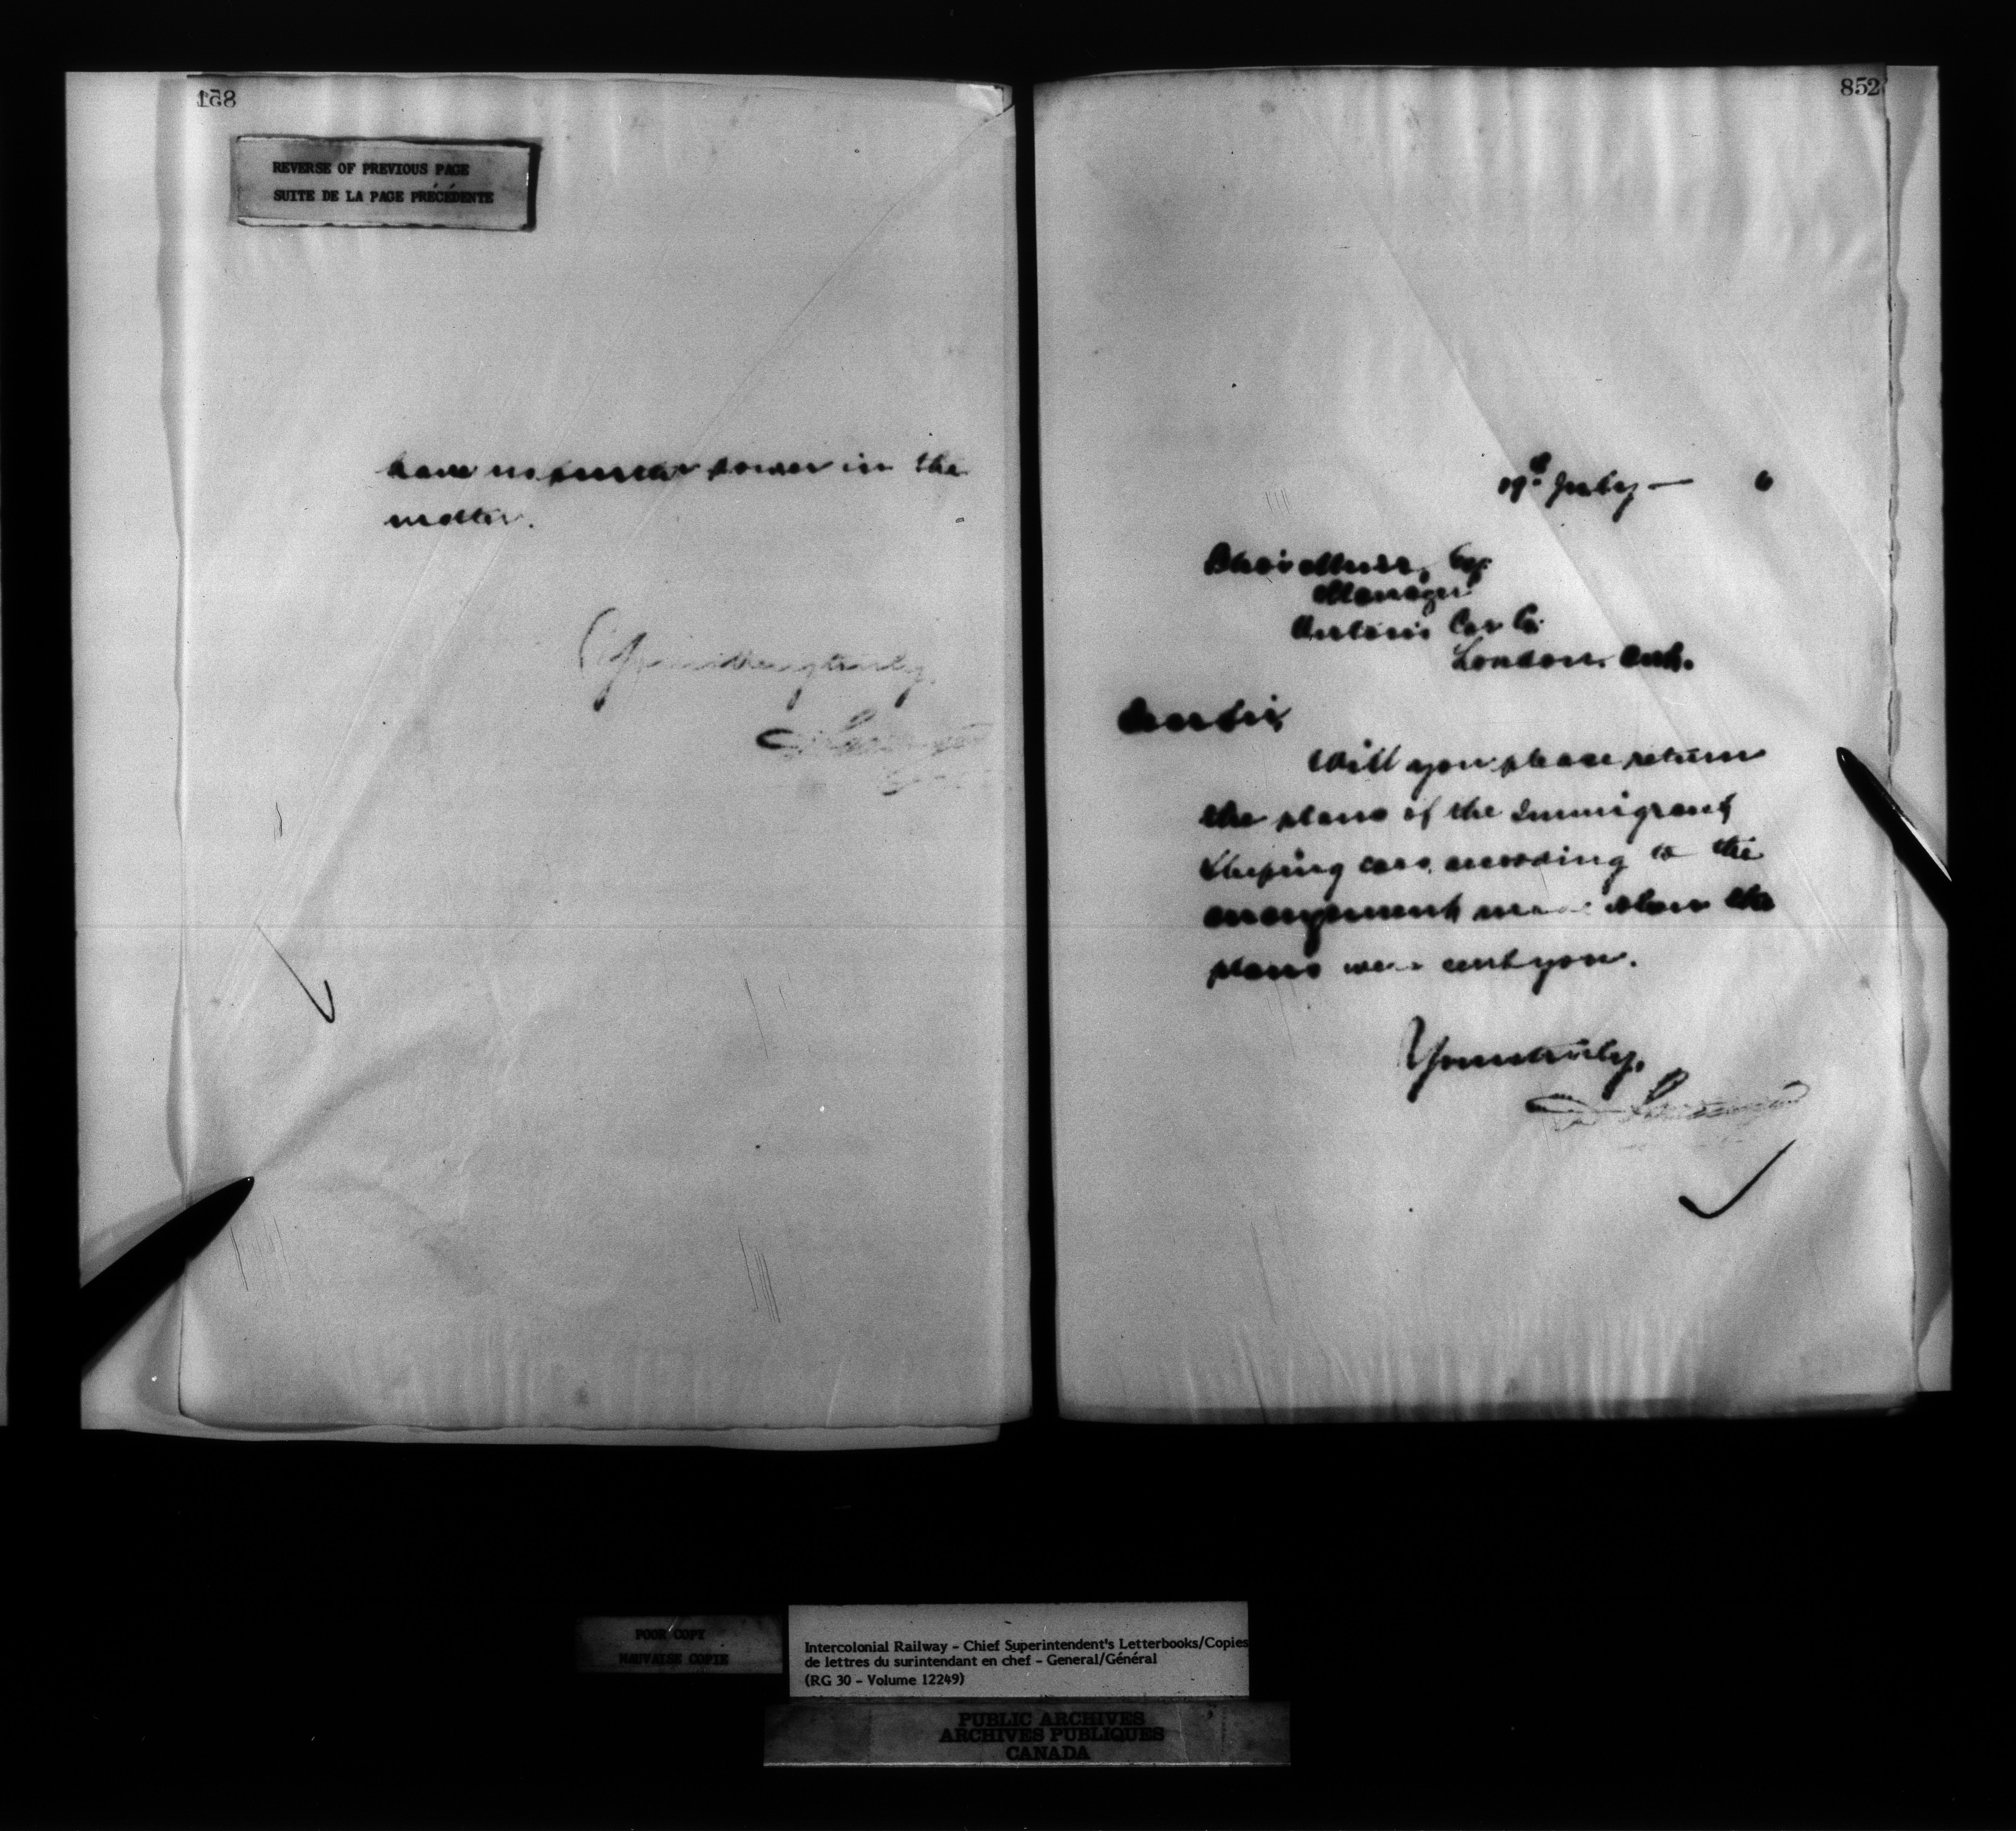 851
REVERSE OF PREVIOUS PAGE
SUITE DE LA PAGE PRÉCÉDENTE
have no further power in the
matter.
Yours very truly,
852
19th July — 6
Manager
Ontario Car Co.
London. Ont.
Dear Sir,
Will you please return
the plans of the Immigrant
Sleeping cars, according to the
arrangement made when the
plans were sent you.
Yours truly,
POOR COPY
MAUVAISE COPIE
Intercolonial Railway - Chief Superintendent's Letterbooks/Copies
de lettres du surintendant en chef - General/Général
(RG 30 - Volume 12249)
PUBLIC ARCHIVES
ARCHIVES PUBLIQUES
CANADA